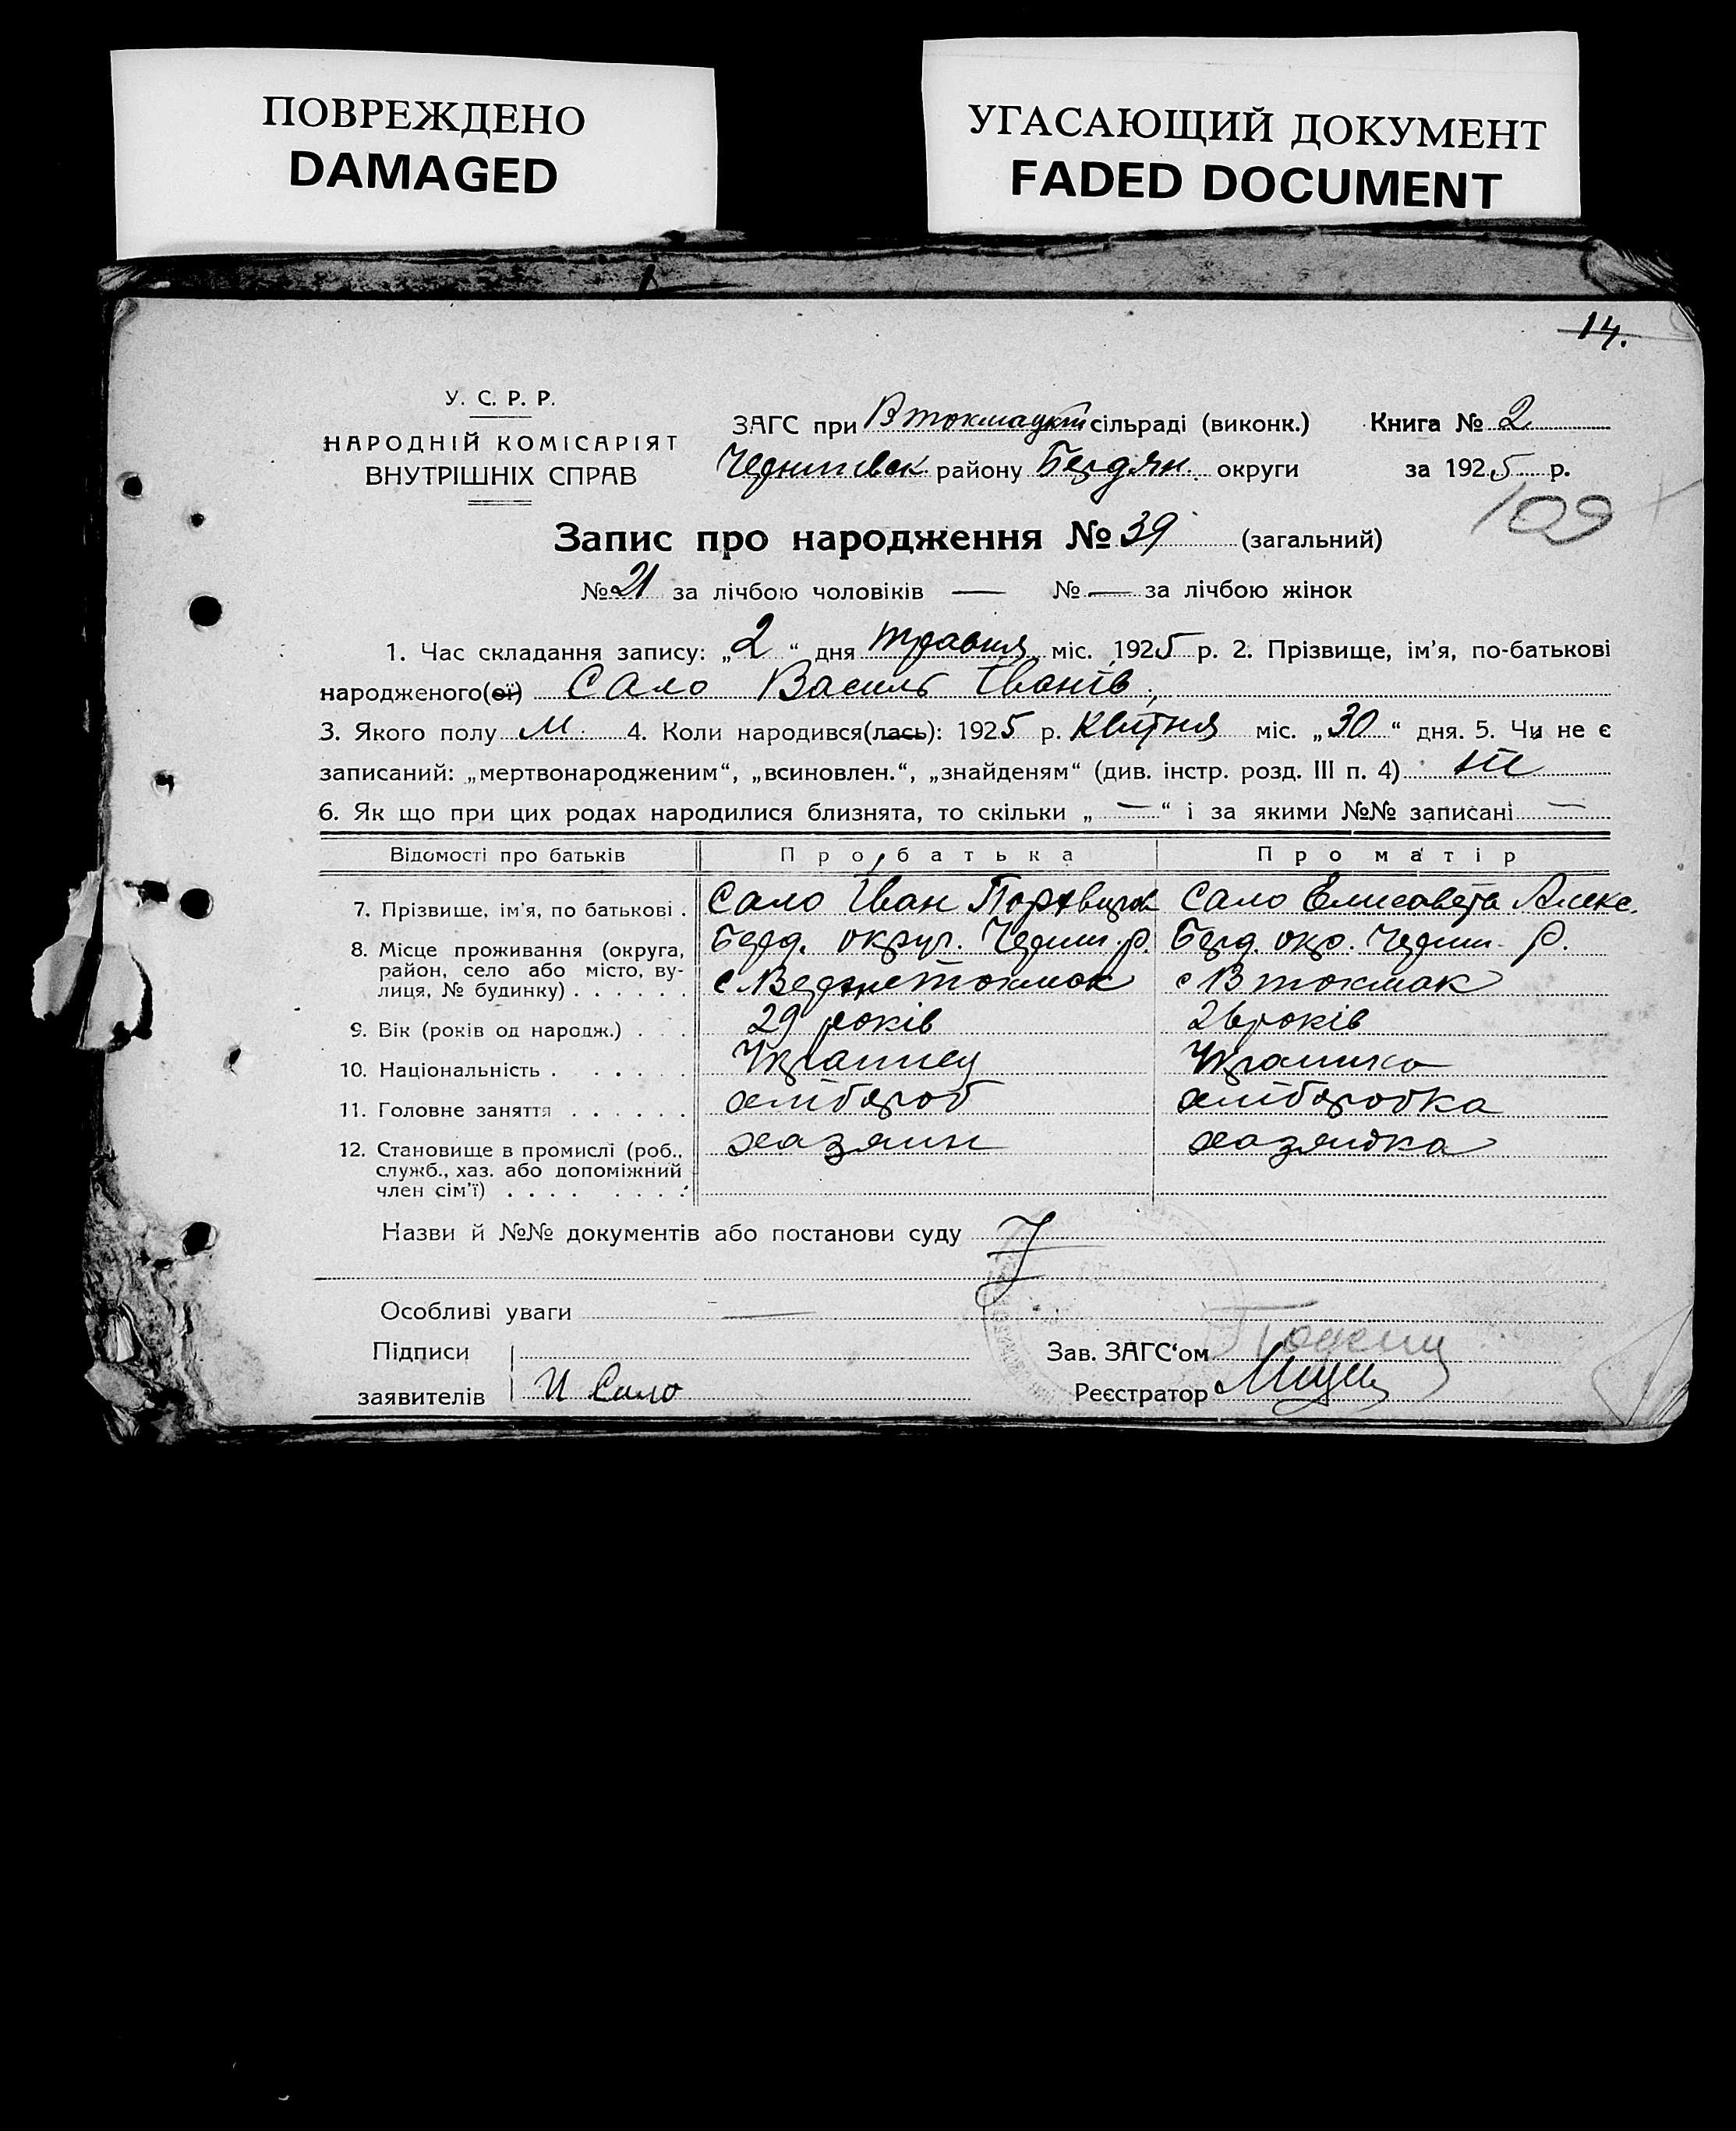 ПОВРЕЖДЕНО
DAMAGED
УГАСАЮЩИЙ ДОКУМЕНТ
FADED DOCUMENT
14.
У. С. Р. Р.
НАРОДНІЙ КОМІСАРІЯТ
ВНУТРІШНІХ СПРАВ
ЗАГС при В токмацкій сільраді (виконк.) Книга № 2
Чернигівск району Бердян. округи за 1925 р.
109
Запис про народження № 39 (загальний)
№ 21 за лічбою чоловіків — № — за лічбою жінок
1. Час складання запису: „2“ дня травня міс. 1925 р. 2. Прізвище, ім'я, по-батькові
народженого(ої) Сало Василь Іванів
3. Якого полу м. 4. Коли народився(лась): 1925 р. Квітня міс. „30“ дня. 5. Чи не є
записаний: „мертвонародженим“, „всиновлен.“, „знайденям“ (див. інстр. розд. III п. 4) ні
6. Як що при цих родах народилися близнята, то скільки „—“ і за якими №№ записані —
Відомості про батьків Про батька Про матір
7. Прізвище, ім'я, по батькові . Сало Іван Сало Елисавета Алекс.
8. Місце проживання (округа, район, село або місто, вулиця, № будинку) . . . . . . Берд. округ. Черниг. р. Берд. окр. Черниг. р.
с Верхнетокмак с В токмак
9. Вік (років од народж.) . . . 29 років 26 років
10. Національність . . . . . . Украинец Украинка
11. Головне заняття . . . . . . хлібороб хліборобка
12. Становище в промислі (роб., служб., хаз. або допоміжний член сім'ї) . . . . . . . . хазяин хазяйка
Назви й №№ документів або постанови суду
Особливі уваги —
Підписи Зав. ЗАГС'ом
заявителів И Сало Реєстратор